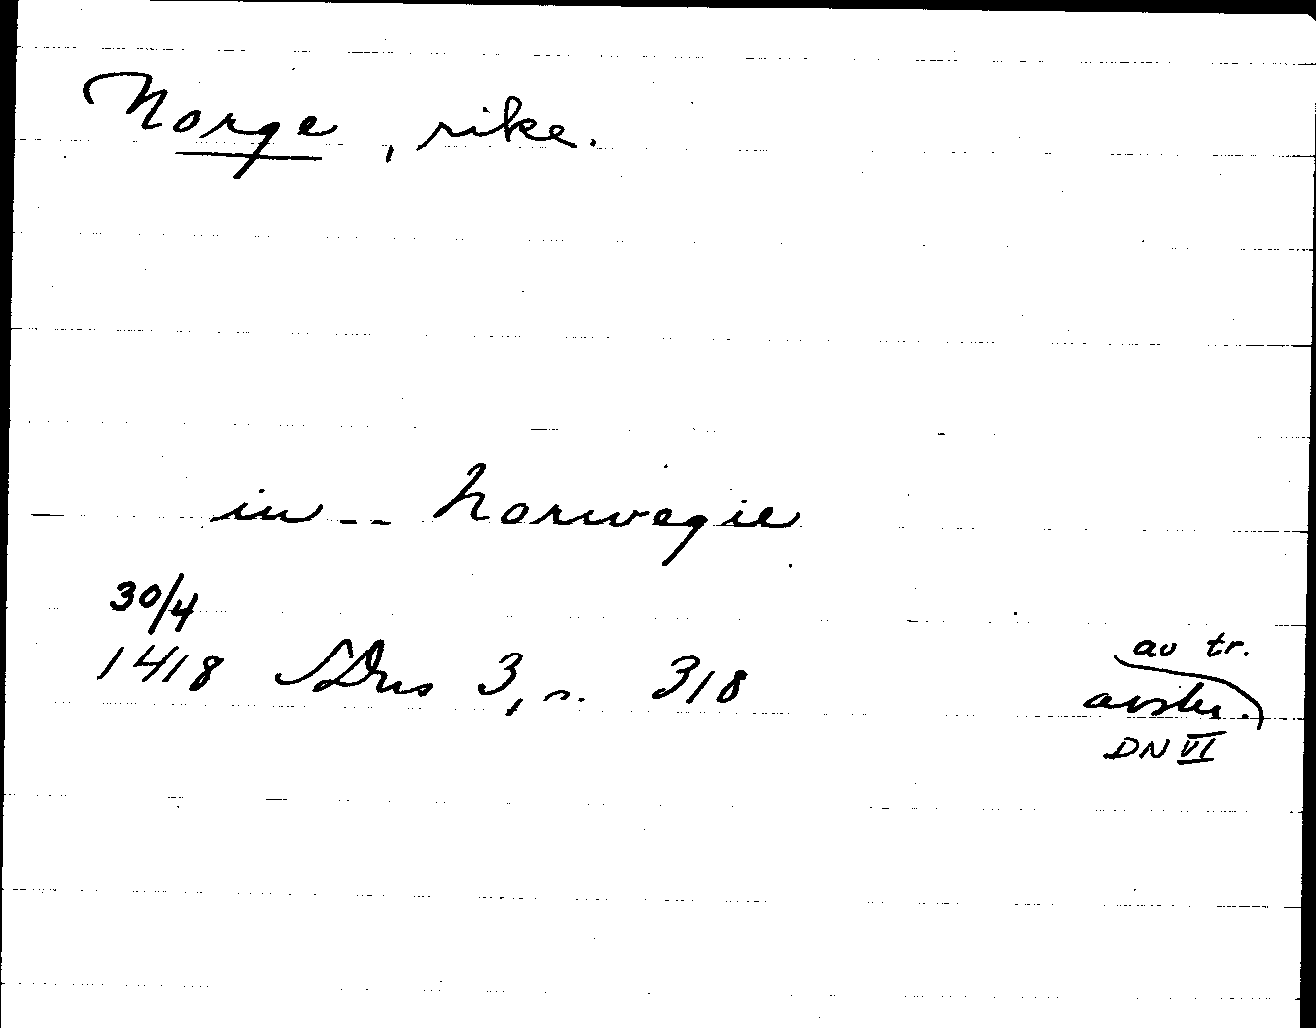 Norge, rike.
in -- Norwegie
30/4
1418 SDns 3, s. 318
av tr.
avskr.
DN VI